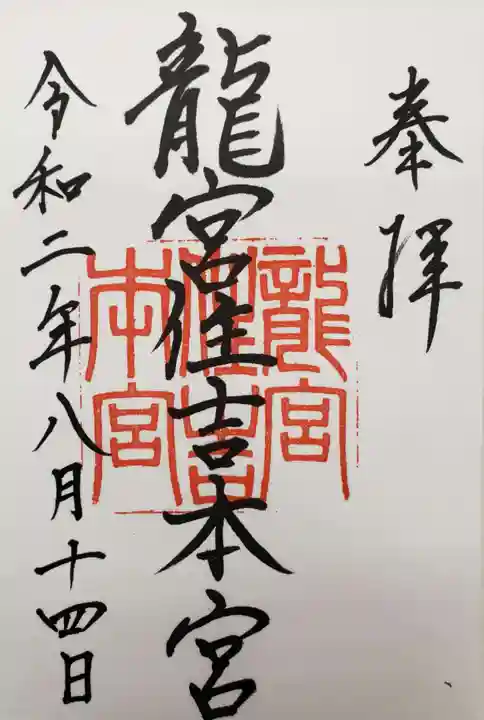 奉拝
龍宮住吉本宮
令和二年八月十四日
龍宮
住吉
本宮